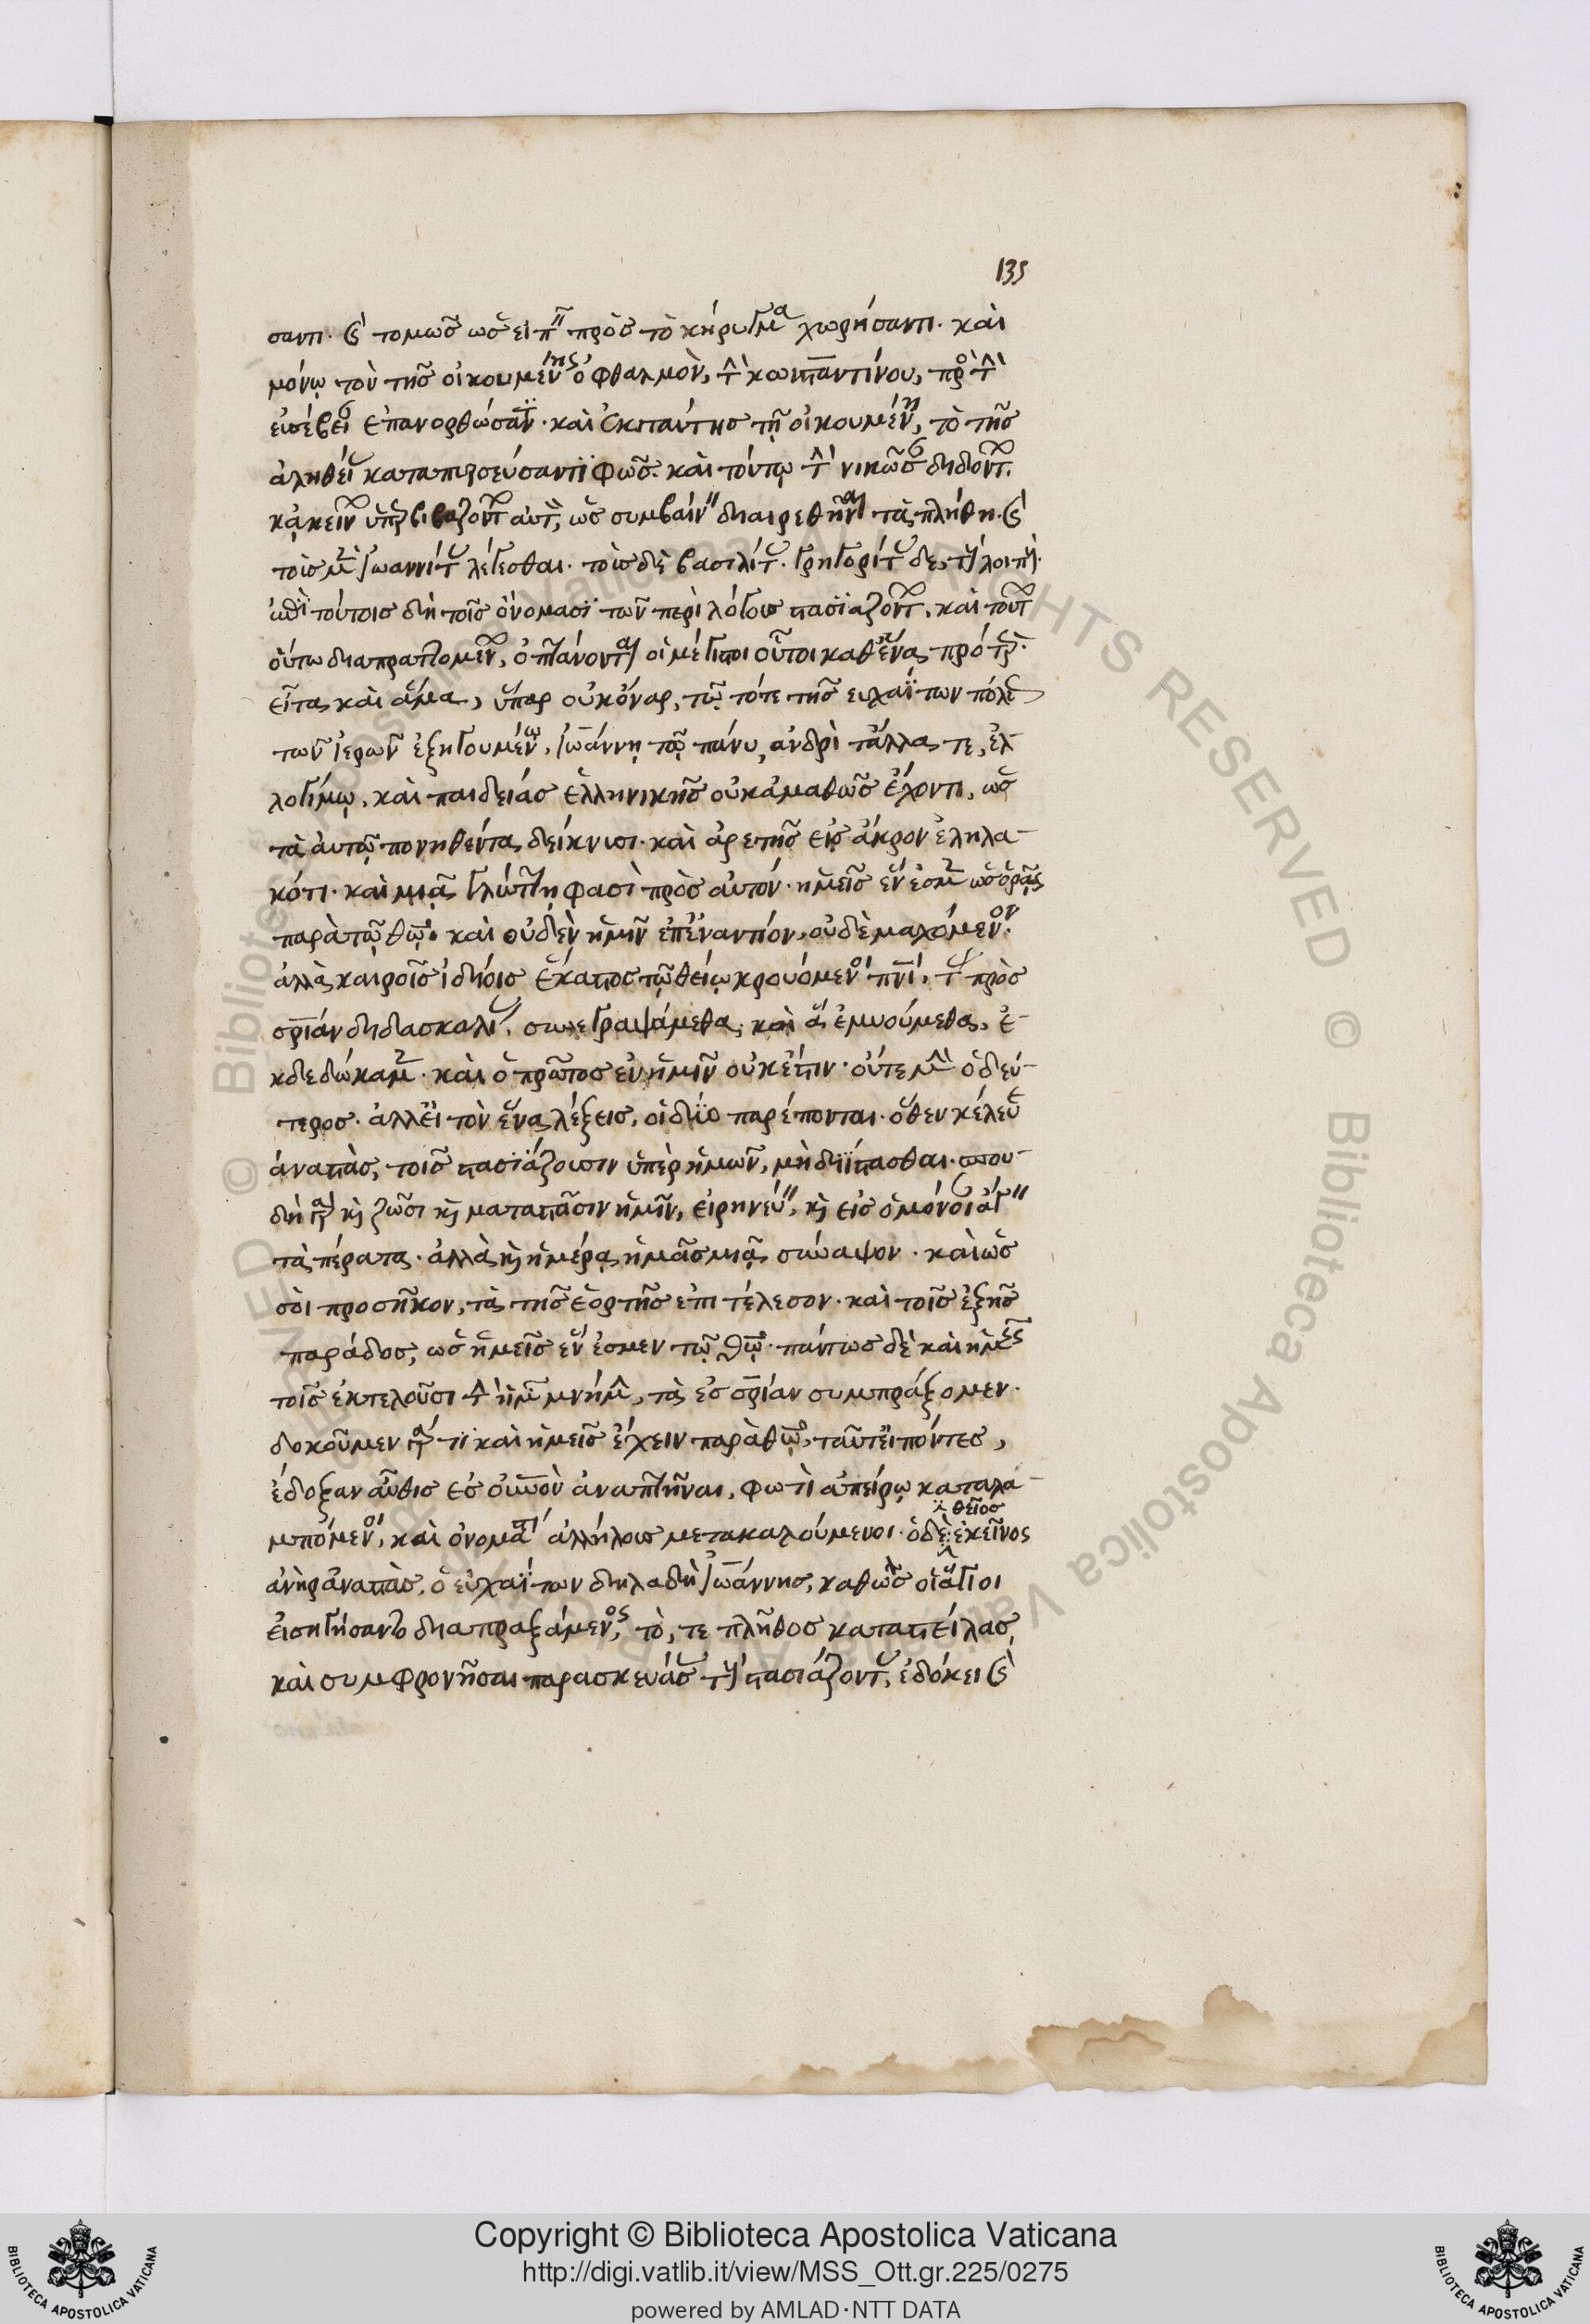 135
σαντι. καὶ τομῶς ὡς εἰπεῖν πρὸς τὸ κήρυγμα χωρήσαντι. καὶ
μόνῳ τὸν τῆς οἰκουμένης ὀφθαλμὸν, τὴν κωνσταντίνου, πρὸς τὴν
εὐσέβειαν ἐπανορθώσαντι. καὶ ἐκ ταύτης τῇ οἰκουμένῃ, τὸ τῆς
ἀληθείας καταπιστεύσαντι φῶς. καὶ τούτῳ τὴν νικῶσαν διδόντων.
κἀκείνων ὑπερβιβαζόντων αὐτόν, ὡς συμβαίνειν διαιρεθῆναι τὰ πλήθη. καὶ
τοῖς μὲν ἰωαννίτας λέγεσθαι. τοῖς δὲ βασιλίτας. γρηγορίτας δὲ, τοὺς λοιπούς.
ἐπὶ τούτοις δὴ τοῖς ὀνόμασι τῶν περὶ λόγους στασιαζόντων. καὶ τούτων
οὕτω διαπραττομένων, ὀπτάνονται οἱ μέγιστοι οὗτοι καθ' ἕνα, πρότερον.
εἶτα καὶ ἅμα, ὕπαρ οὐκ ὄναρ, τῷ τότε τῆς εὐχαΐτων πόλεως
τῶν ἱερῶν ἐξηγουμένῳ, ἰωάννῃ τῷ πάνυ, ἀνδρὶ τἄλλα τε, ἐλ-
λογίμῳ. καὶ παιδείας ἑλληνικῆς οὐκ ἀμαθῶς ἔχοντι, ὡς
τὰ αὐτῷ πονηθέντα δείκνυσι. καὶ ἀρετῆς εἰς ἄκρον ἐληλα-
κότι. καὶ μιᾷ γλώττῃ φασὶ πρὸς αὐτόν. ἡμεῖς ἕν ἐσμεν ὡς ὁρᾷς
παρὰ τῷ θῷ. καὶ οὐδὲν ἡμῖν ἐπεναντίον, οὐδὲ μαχόμενον.
ἀλλὰ καιροῖς ἰδίοις ἕκαστος τῷ θείῳ κρουόμενοι πνι, τὰς πρὸς
σρίαν διδασκαλίας, συνεγραψάμεθα, καὶ ἃ ἐμυούμεθα, ἐ-
κδεδώκαμεν. καὶ ὁ πρῶτος ἐν ἡμῖν οὐκ ἔστιν. οὔτε μὴν ὁ δεύ-
τερος. ἀλλ' εἰ τὸν ἕνα λέξεις, οἱ δύο παρέπονται. ὅθεν κέλευε
ἀναστὰς, τοῖς στασιάζουσιν ὑπὲρ ἡμῶν, μὴ διίστασθαι. σπου-
δὴ γὰρ καὶ ζῶσι καὶ μεταστᾶσιν ἡμῖν, εἰρηνεύειν, καὶ εἰς ὁμόνοιαν ἄγειν
τὰ πέρατα. ἀλλὰ καὶ ἡμέρᾳ ἡμᾶς μιᾷ σύναψον. καὶ ὡς
σοὶ προσῆκον, τὰ τῆς ἑορτῆς ἐπιτέλεσον. καὶ τοῖς ἑξῆς
παράδος, ὡς ἡμεῖς ἕν ἐσμεν τῷ θῷ. πάντως δὲ καὶ ἡμεῖς
τοῖς ἐκτελοῦσι τὴν ἡμῶν μνήμην, τὰ ἐς σρίαν συμπράξομεν.
δοκοῦμεν γάρ τι καὶ ἡμεῖς ἔχειν παρὰ θῷ, ταῦτ' εἰπόντες,
ἔδοξαν αὖθις ἐς οὐνὸν ἀναπτῆναι, φωτὶ ἀπείρῳ καταλα-
μπόμενοι, καὶ ὀνομαστὶ ἀλλήλους μετακαλούμενοι. ὁ δὲ θεῖος ἐκεῖνος
ἀνὴρ ἀναστὰς, ὁ εὐχαΐτων δηλαδὴ ἰωάννης, καθὼς οἱ ἅγιοι
εἰσηγήσαντο διαπραξάμενος, τὸ, τε πλῆθος καταστείλας,
καὶ συμφρονῆσαι παρασκευάσας τοὺς στασιάζοντας, ἐδόκει καὶ
Copyright © Biblioteca Apostolica Vaticana
http://digi.vatlib.it/view/MSS_Ott.gr.225/0275
powered by AMLAD·NTT DATA